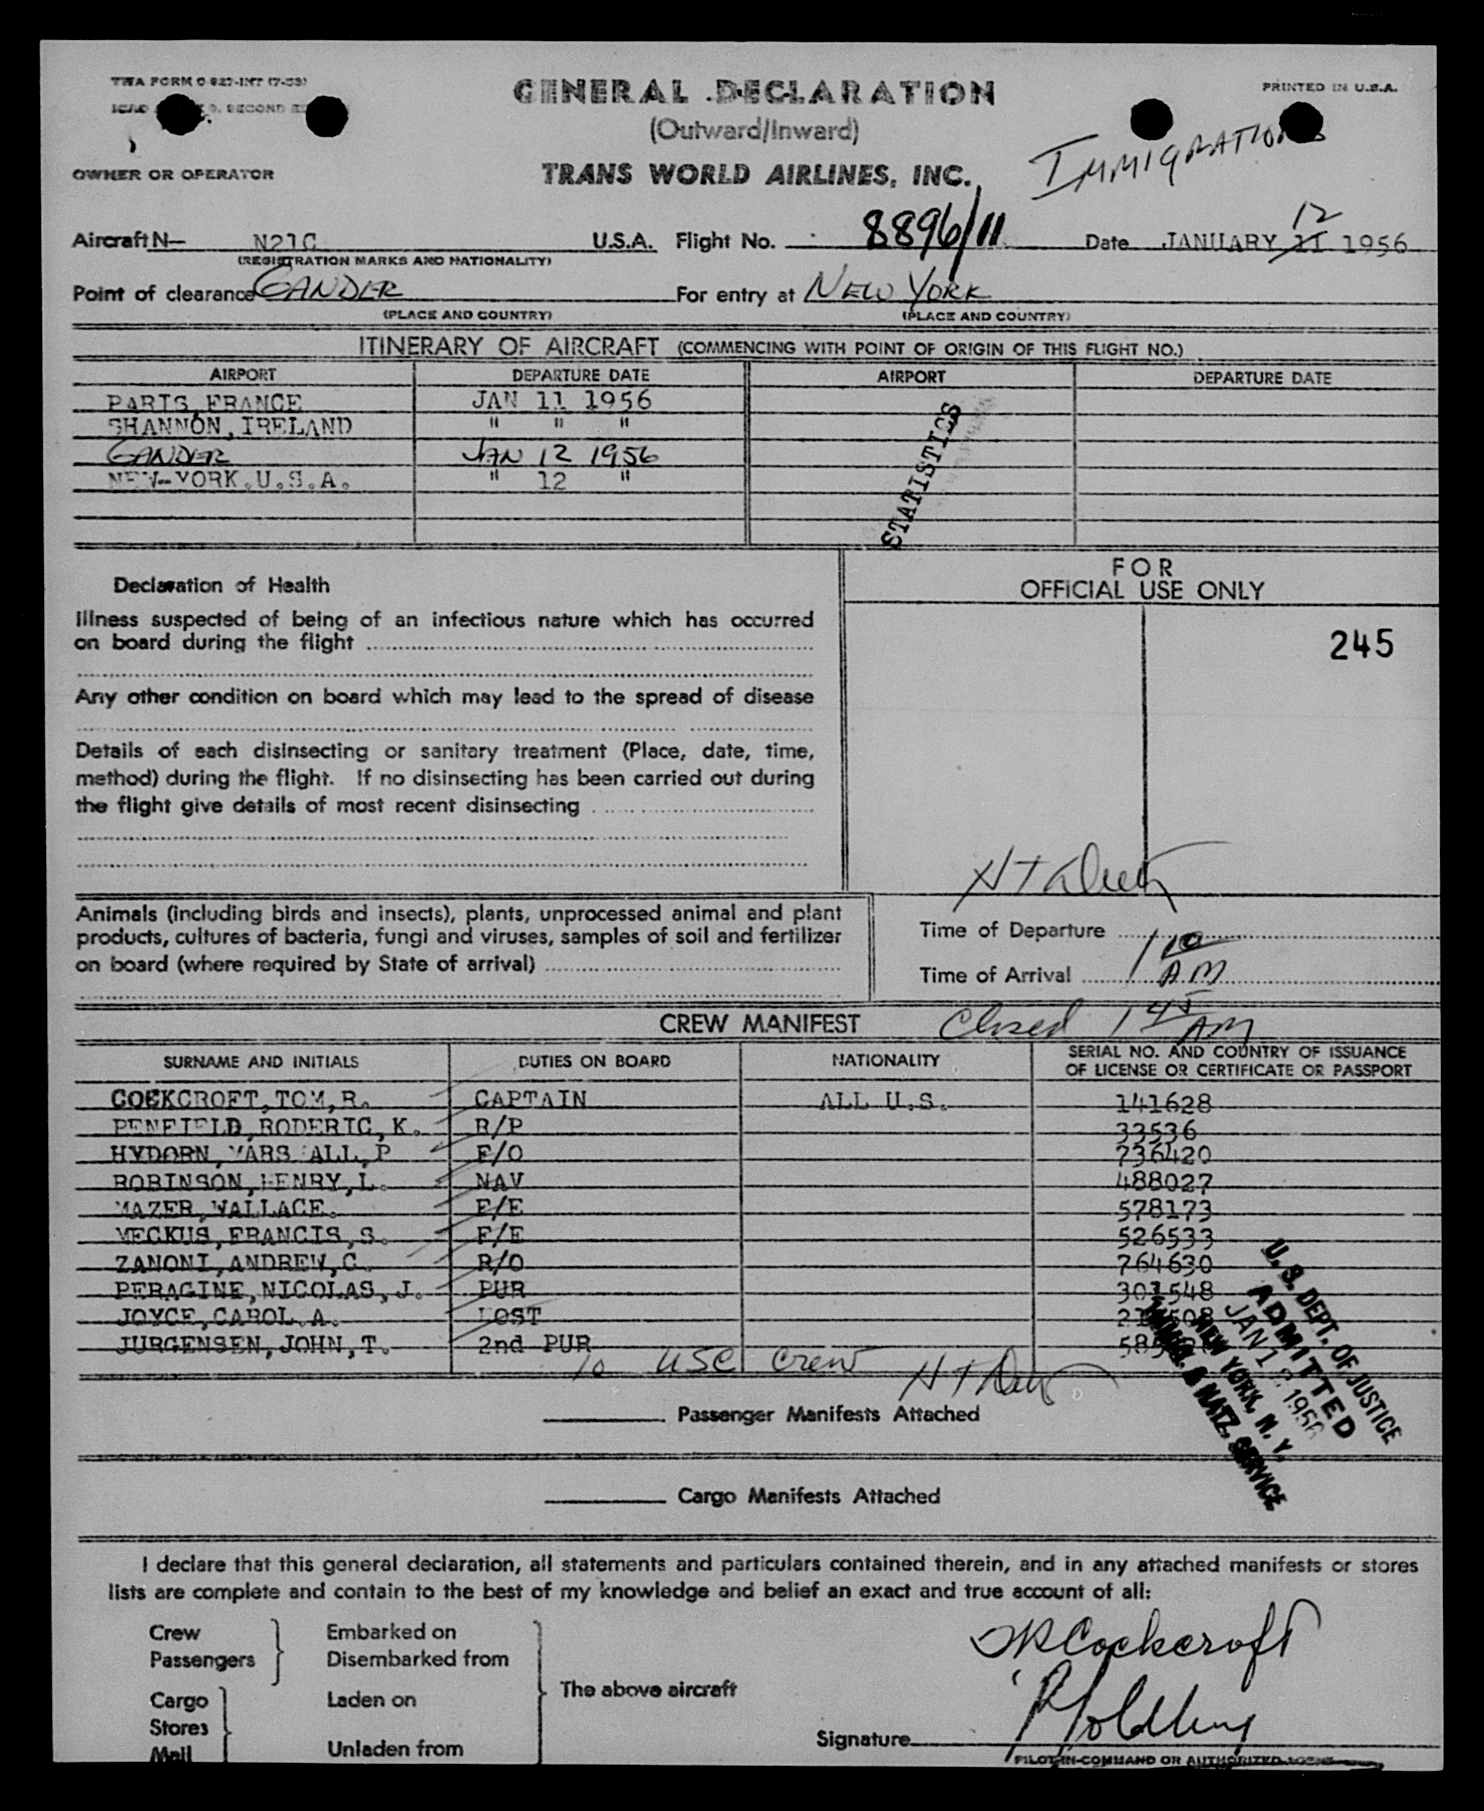 TWA FORM O 827-INT (7-53)
GENERAL DECLARATION
PRINTED IN U.S.A.
SECOND
(Outward/Inward)
IMMIGRATION
OWNER OR OPERATOR
TRANS WORLD AIRLINES, INC.
12
Aircraft N— N21C U.S.A. Flight No. 8896/11 Date JANUARY 11 1956
(REGISTRATION MARKS AND NATIONALITY)
Point of clearance GANDER For entry at NEW YORK
(PLACE AND COUNTRY) (PLACE AND COUNTRY)
ITINERARY OF AIRCRAFT (COMMENCING WITH POINT OF ORIGIN OF THIS FLIGHT NO.)
AIRPORT DEPARTURE DATE AIRPORT DEPARTURE DATE
PARIS, FRANCE JAN 11 1956
SHANNON, IRELAND " " "
GANDER JAN 12 1956
NEW-YORK.U.S.A. " 12 "
STATISTICS
FOR
OFFICIAL USE ONLY
245
Declaration of Health
Illness suspected of being of an infectious nature which has occurred
on board during the flight
Any other condition on board which may lead to the spread of disease
Details of each disinsecting or sanitary treatment (Place, date, time,
method) during the flight. If no disinsecting has been carried out during
the flight give details of most recent disinsecting
Animals (including birds and insects), plants, unprocessed animal and plant
products, cultures of bacteria, fungi and viruses, samples of soil and fertilizer
on board (where required by State of arrival)
Time of Departure
Time of Arrival 1 10 AM
CREW MANIFEST Closed 1 45 AM
SURNAME AND INITIALS DUTIES ON BOARD NATIONALITY SERIAL NO. AND COUNTRY OF ISSUANCE
OF LICENSE OR CERTIFICATE OR PASSPORT
COCKCROFT,TOM,R. CAPTAIN ALL U.S. 141628
PENFIELD,RODERIC,K. R/P 33536
HYDORN, MARSHALL,P F/O 736420
ROBINSON,HENRY,L. NAV 488027
MAZER,WALLACE. F/E 578173
MECKUS,FRANCIS,S. F/E 526533
ZANONI,ANDREW,C. R/O 764630
PERAGINE,NICOLAS,J. PUR 301548
JOYCE,CAROL.A. HOST
JURGENSEN,JOHN,T. 2nd PUR
10 USC Crew
U.S. DEPT. OF JUSTICE
ADMITTED
JAN 12 1956
NEW YORK, N.Y.
IMMIG. & NATZ. SERVICE
Passenger Manifests Attached
Cargo Manifests Attached
I declare that this general declaration, all statements and particulars contained therein, and in any attached manifests or stores
lists are complete and contain to the best of my knowledge and belief an exact and true account of all:
Crew Embarked on
Passengers Disembarked from
Cargo Laden on
Stores
Mail Unladen from
The above aircraft
TR Cockcroft
Signature
PILOT-IN-COMMAND OR AUTHORIZED AGENT